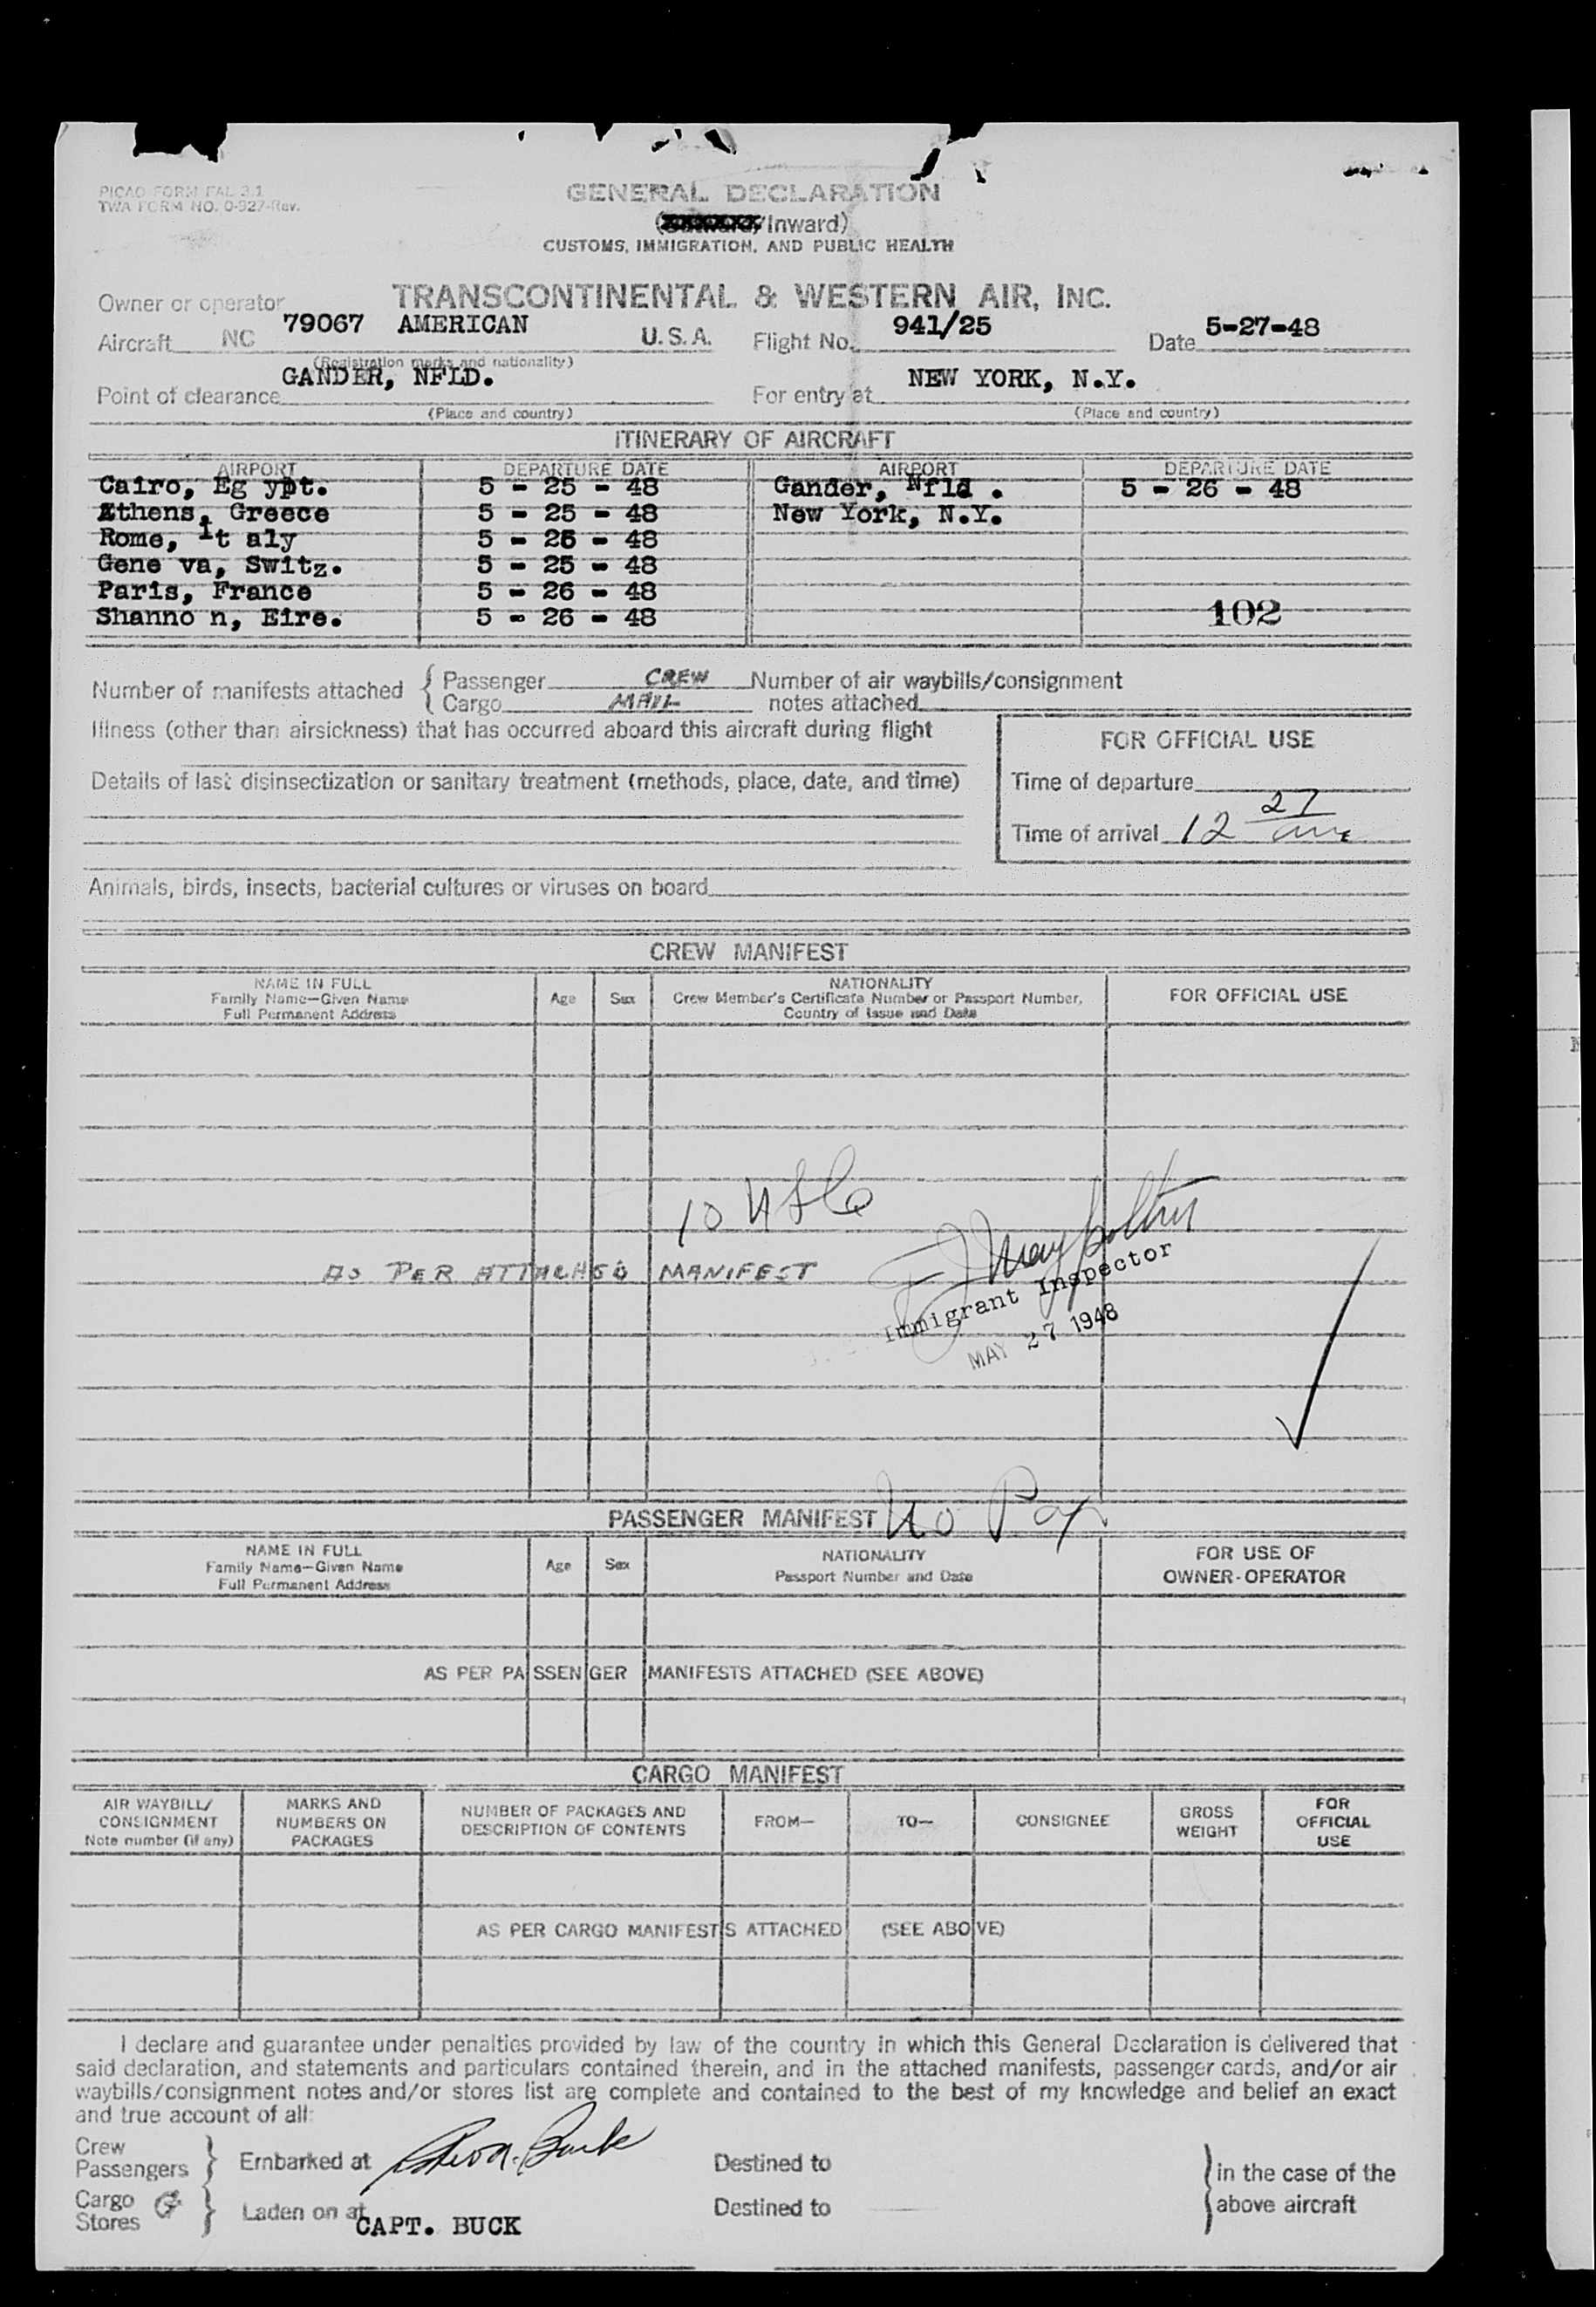 PICAO FORM FAL 3.1
TWA FORM NO. 0-927-Rev.
GENERAL DECLARATION
(Outward/Inward)
CUSTOMS, IMMIGRATION, AND PUBLIC HEALTH
Owner or operator TRANSCONTINENTAL & WESTERN AIR, INC.
Aircraft NC 79067 AMERICAN U.S.A. Flight No. 941/25 Date 5-27-48
(Registration marks and nationality)
Point of clearance GANDER, NFLD. For entry at NEW YORK, N.Y.
(Place and country) (Place and country)
ITINERARY OF AIRCRAFT
AIRPORT DEPARTURE DATE AIRPORT DEPARTURE DATE
Cairo, Eg ypt. 5 - 25 - 48 Gander, Nfld . 5 - 26 - 48
Athens, Greece 5 - 25 - 48 New York, N.Y.
Rome, It aly 5 - 25 - 48
Gene va, Switz. 5 - 25 - 48
Paris, France 5 - 26 - 48
Shanno n, Eire. 5 - 26 - 48 102
Number of manifests attached { Passenger CREW Number of air waybills/consignment
Cargo MAIL notes attached
Illness (other than airsickness) that has occurred aboard this aircraft during flight
FOR OFFICIAL USE
Details of last disinsectization or sanitary treatment (methods, place, date, and time)
Time of departure
Time of arrival 12 27 am
Animals, birds, insects, bacterial cultures or viruses on board
CREW MANIFEST
NAME IN FULL
Family Name—Given Name
Full Permanent Address
Age
Sex
NATIONALITY
Crew Member's Certificate Number or Passport Number,
Country of Issue and Date
FOR OFFICIAL USE
10
AS PER ATTACHED MANIFEST
Immigrant Inspector
MAY 27 1948
PASSENGER MANIFEST No Pax
NAME IN FULL
Family Name—Given Name
Full Permanent Address
Age
Sex
NATIONALITY
Passport Number and Date
FOR USE OF
OWNER-OPERATOR
AS PER PASSENGER MANIFESTS ATTACHED (SEE ABOVE)
CARGO MANIFEST
AIR WAYBILL/
CONSIGNMENT
Note number (if any)
MARKS AND
NUMBERS ON
PACKAGES
NUMBER OF PACKAGES AND
DESCRIPTION OF CONTENTS
FROM—
TO—
CONSIGNEE
GROSS
WEIGHT
FOR
OFFICIAL
USE
AS PER CARGO MANIFESTS ATTACHED (SEE ABOVE)
I declare and guarantee under penalties provided by law of the country in which this General Declaration is delivered that
said declaration, and statements and particulars contained therein, and in the attached manifests, passenger cards, and/or air
waybills/consignment notes and/or stores list are complete and contained to the best of my knowledge and belief an exact
and true account of all:
Crew
Passengers } Embarked at Destined to } in the case of the
Cargo
Stores } Laden on at Destined to above aircraft
CAPT. BUCK